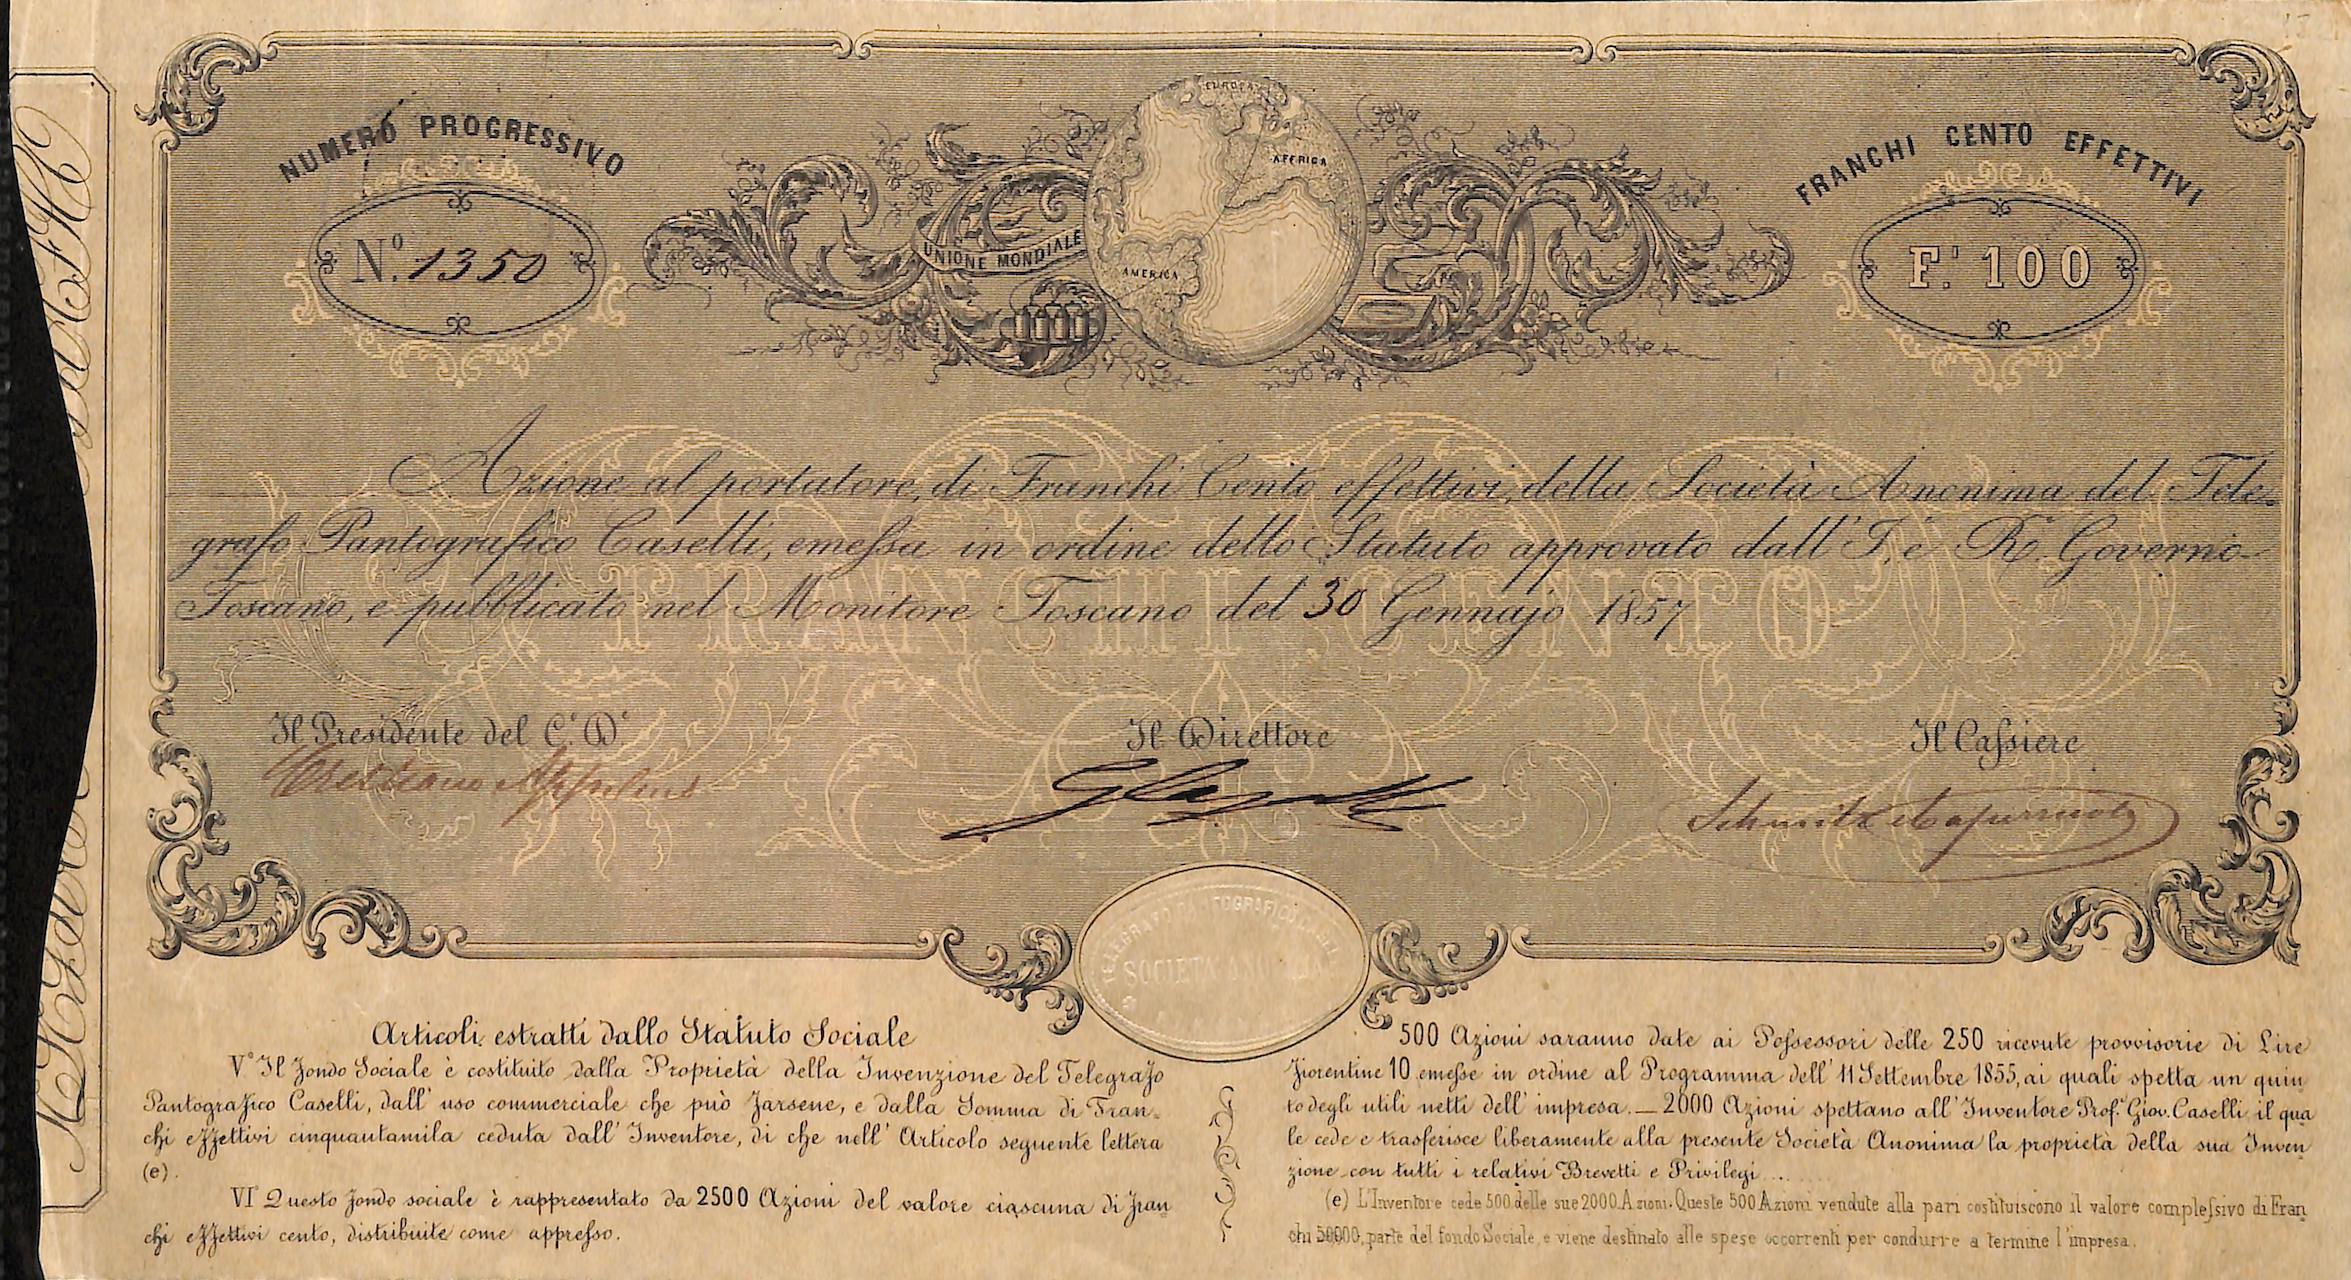 NUMERO PROGRESSIVO
Nº. 1350
EUROPA
AFFRICA
UNIONE MONDIALE
AMERICA
FRANCHI CENTO EFFETTIVI
F.i 100
Azione al portatore, di Franchi Cento effettivi, della Società Anonima del Tele-
grafo Pantografico Caselli, emessa in ordine dello Statuto approvato dall' I. e R. Governo
Toscano, e pubblicato nel Monitore Toscano del 30 Gennajo 1857
FRANCHI CENTO
Il Presidente del C. D.
Il Direttore
Il Cassiere
TELEGRAFO PANTOGRAFICO CASELLI
SOCIETA ANONIMA
Articoli estratti dallo Statuto Sociale
V° Il fondo Sociale è costituito dalla Proprietà della Invenzione del Telegrafo
Pantografico Caselli, dall' uso commerciale che può farsene, e dalla Somma di Fran-
chi effettivi cinquantamila ceduta dall' Inventore, di che nell' Articolo seguente lettera
(e).
VI° Questo fondo sociale è rappresentato da 2500 Azioni del valore ciascuna di fran
chi effettivi cento, distribuite come appresso.
500 Azioni saranno date ai Possessori delle 250 ricevute provvisorie di Lire
fiorentine 10 emesse in ordine al Programma dell' 11 Settembre 1855, ai quali spetta un quin
to degli utili netti dell' impresa. — 2000 Azioni spettano all' Inventore Prof. Giov. Caselli il qua
le cede e trasferisce liberamente alla presente Società Anonima la proprietà della sua Inven
zione con tutti i relativi Brevetti e Privilegi......
(e) L'Inventore cede 500 delle sue 2000 Azioni. Queste 500 Azioni vendute alla pari costituiscono il valore complessivo di Fran
chi 50000, parte del fondo Sociale, e viene destinato alle spese occorrenti per condurre a termine l'impresa.